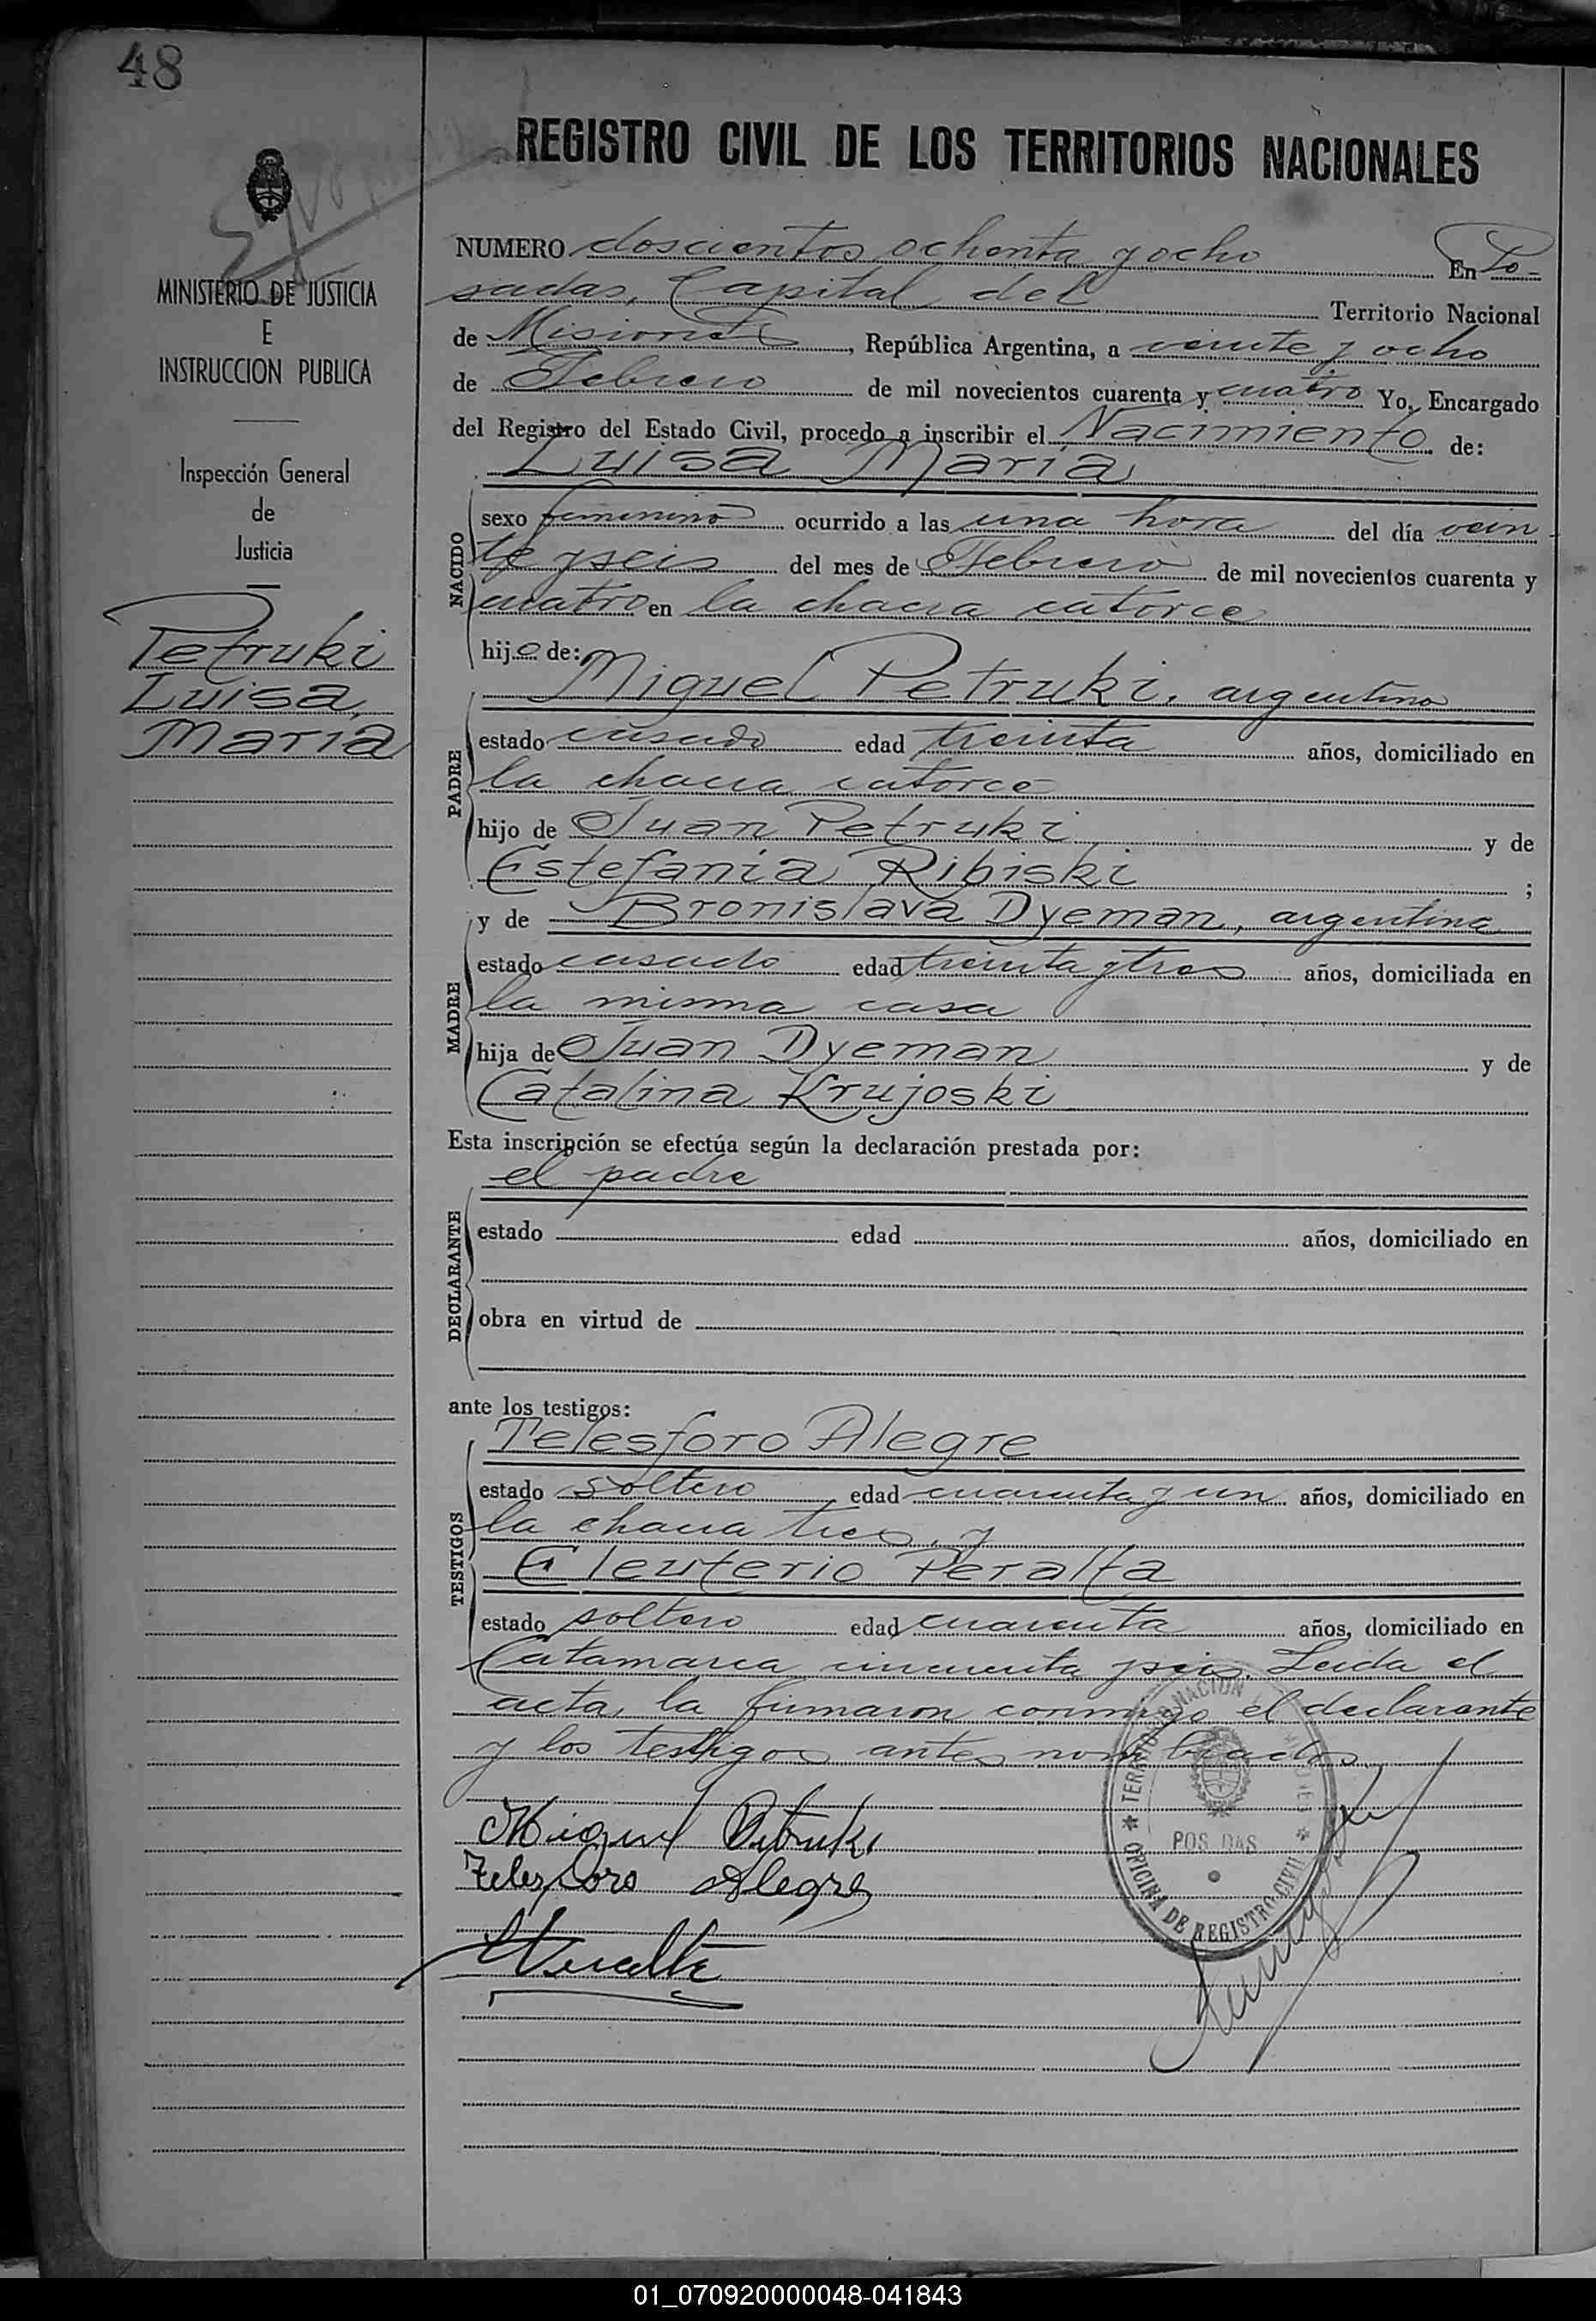 48
REGISTRO CIVIL DE LOS TERRITORIOS NACIONALES
MINISTERIO DE JUSTICIA
E
INSTRUCCION PUBLICA
Inspección General
de
Justicia
Petruki
Luisa
María
NUMERO doscientos ochenta y ocho En Po-
sadas, Capital del Territorio Nacional
de Misiones, República Argentina, a veinte y ocho
de Febrero de mil novecientos cuarenta y cuatro Yo, Encargado
del Registro del Estado Civil, procedo a inscribir el Nacimiento de:
Luisa María
NACIDO
sexo femenino ocurrido a las una hora del día vein
te y seis del mes de Febrero de mil novecientos cuarenta y
cuatro en la chacra catorce
hijo de:
PADRE
Miguel Petruki, argentino
estado casado edad treinta años, domiciliado en
la chacra catorce
hijo de Juan Petruki y de
Estefania Ribiski ;
MADRE
y de Bronislava Dyeman, argentina
estado casado edad treinta y tres años, domiciliada en
la misma casa
hija de Juan Dyeman y de
Catalina Krujoski
Esta inscripción se efectúa según la declaración prestada por:
DECLARANTE
el padre
estado edad años, domiciliado en
obra en virtud de
ante los testigos:
TESTIGOS
Telesforo Alegre
estado soltero edad cuarenta y un años, domiciliado en
la chacra tres, y
Eleuterio Peralta
estado soltero edad cuarenta años, domiciliado en
Catamarca cincuenta y seis. Leida el
acta, la firmaron conmigo el declarante
y los testigos antes nombrados.
Miguel Petruki
Telesforo Alegre
EPeralta
TERRITORIO NACIONAL
POSADAS
OFICINA DE REGISTRO CIVIL
01_070920000048-041843